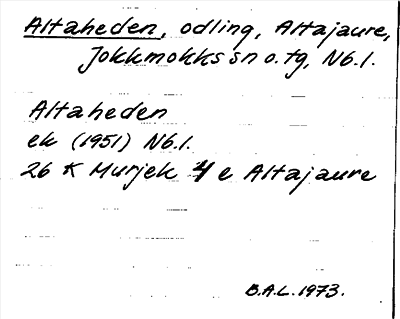 Altaheden, odling, Altajaure,
Jokkmokks sn o. tg, Nb.l.
Altaheden
ek (1951) Nb.l.
26 K Murjek 4 e Altajaure
B.A.L. 1973.